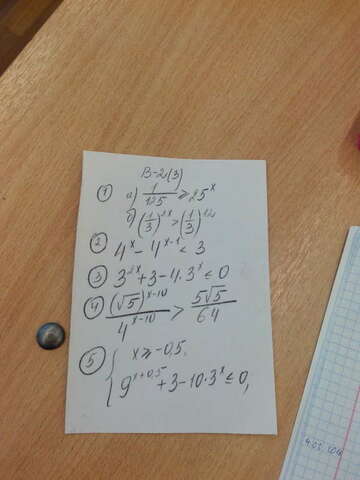 В-2(3)
① а) 1/125 ≥ 25^x
б) (1/3)^2x > (1/3)^12
② 4^x - 4^x-1 ≤ 3
③ 3^2x + 3 - 4·3^x ≤ 0
④ (√5)^x-10 / 4^x-10 > 5√5 / 64
⑤ { x ≥ -0,5,
9^x+0,5 + 3 - 10·3^x ≤ 0,